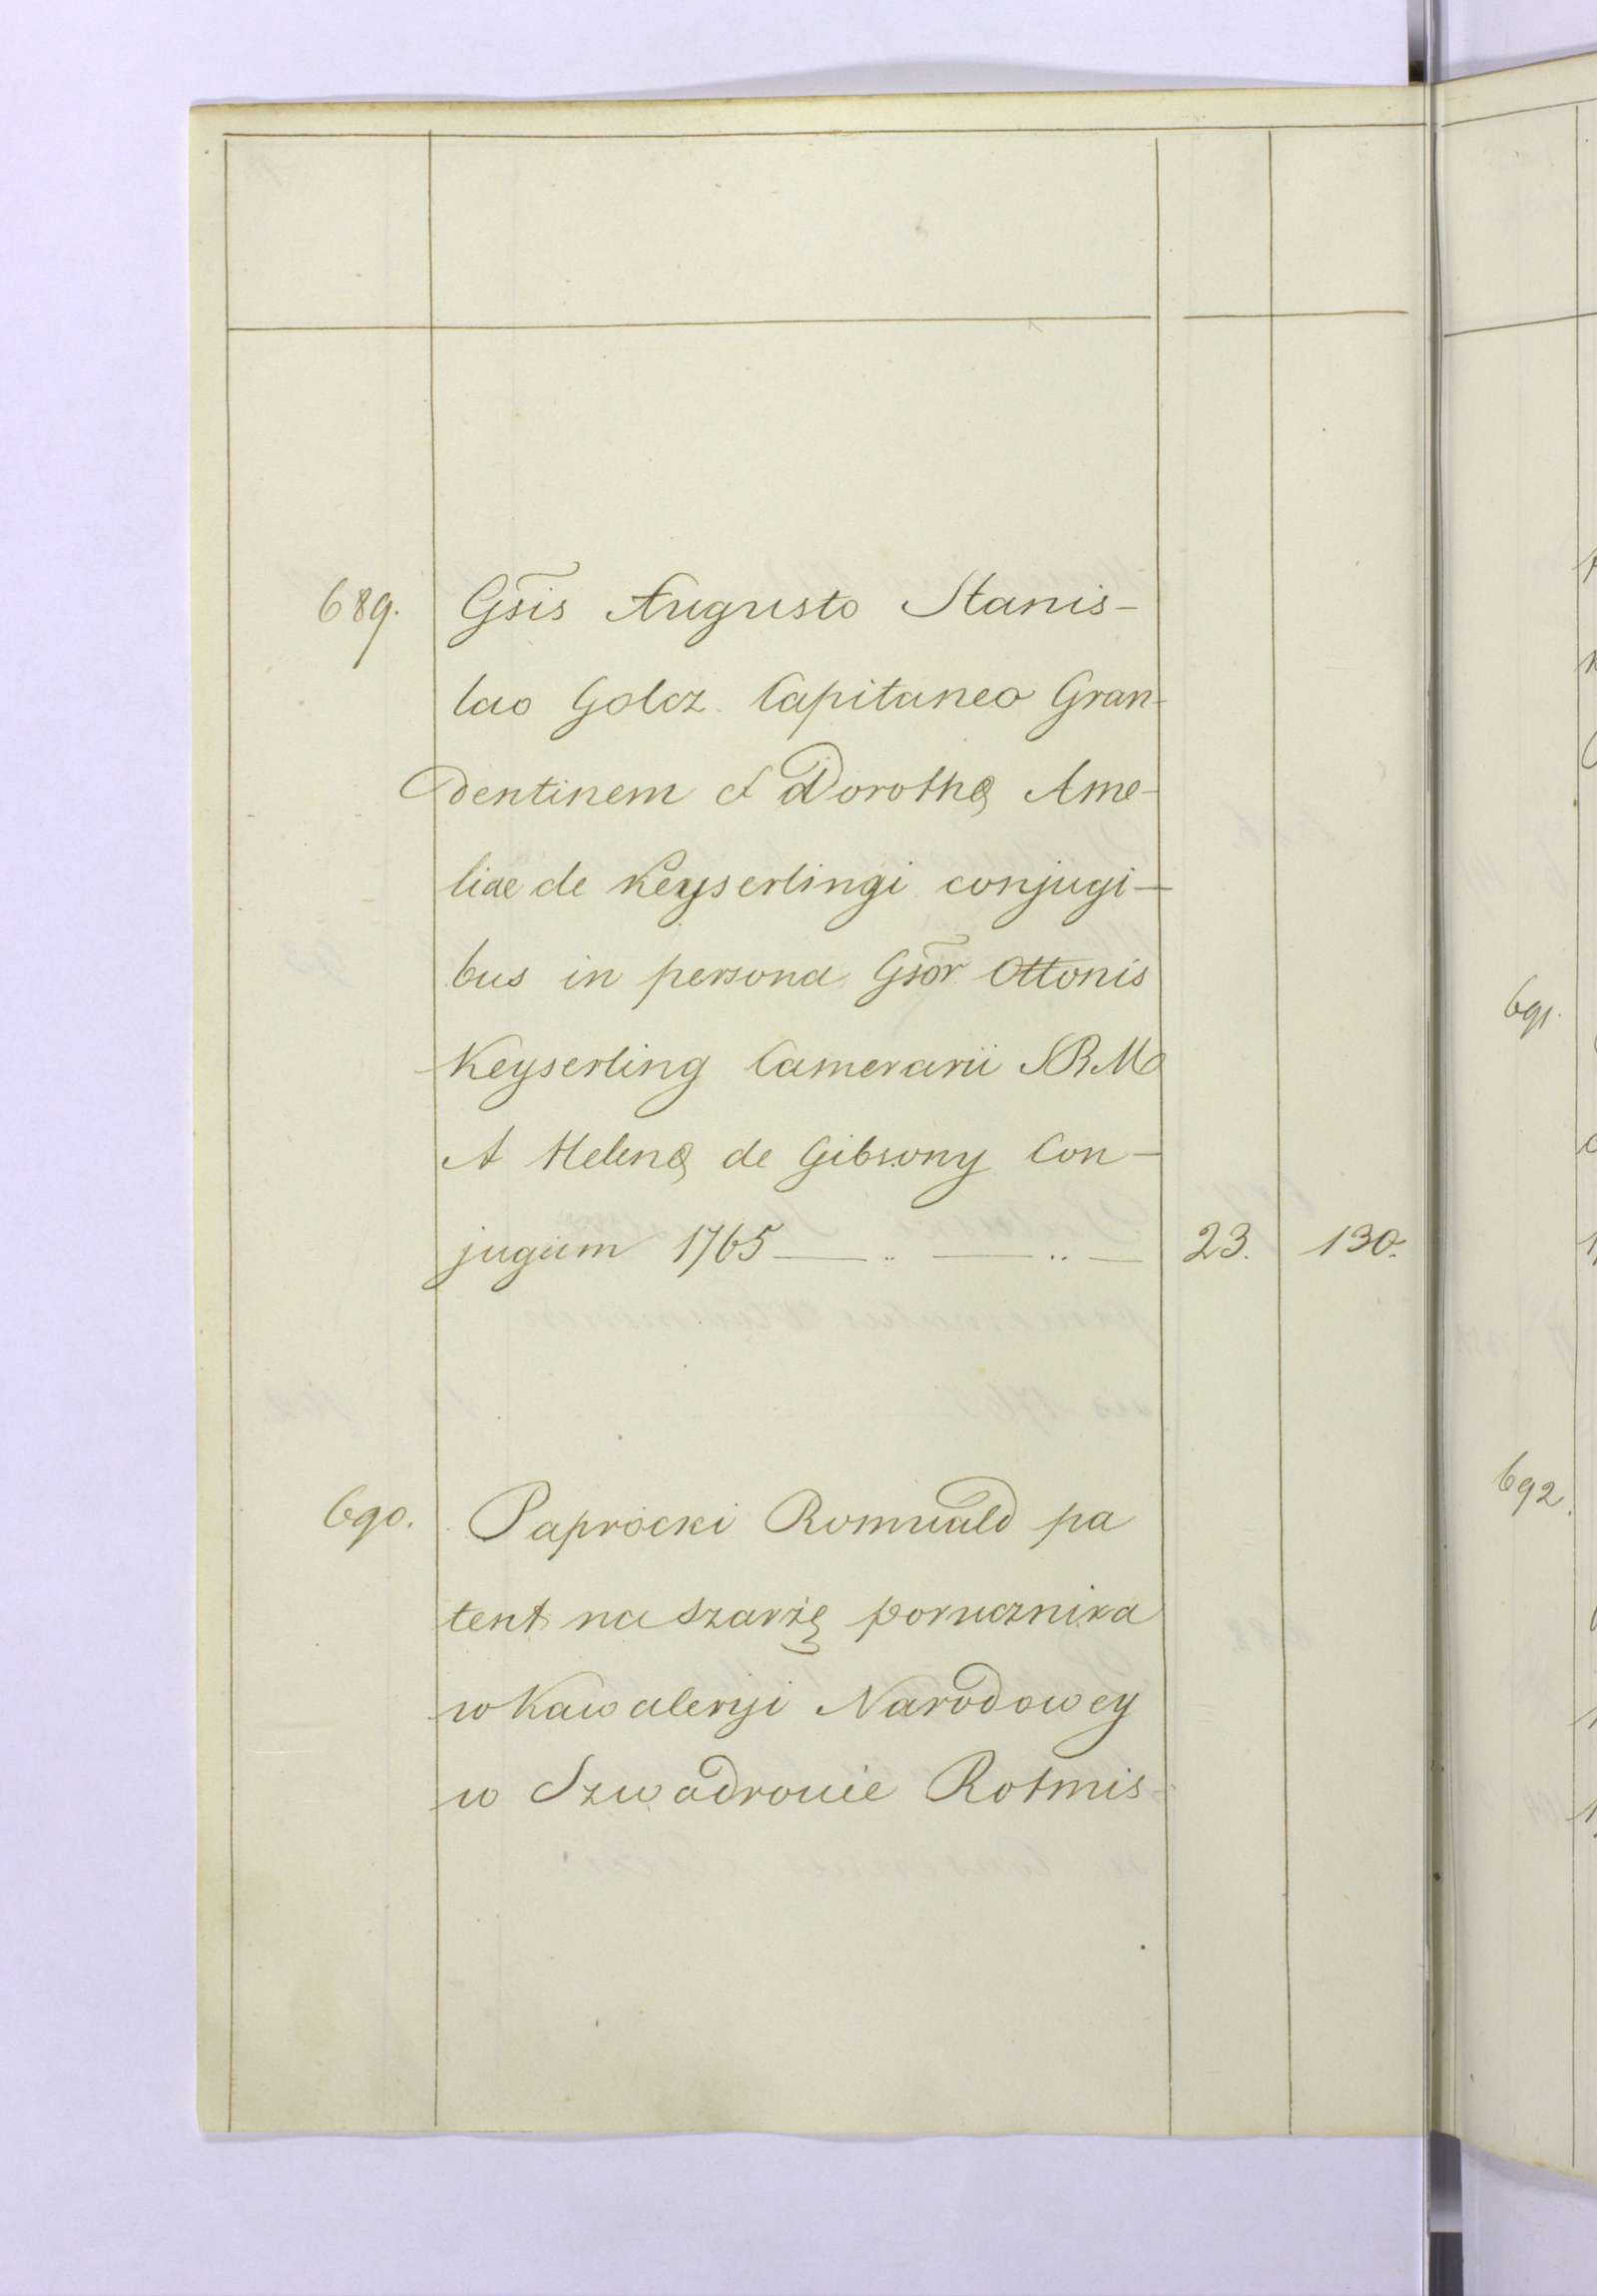 689. Gs̃is Augusto Stanis-
lao Golcz Capitaneo Gran-
dentinem et Dorothę Ame-
liae de Keyserlingi conjugi-
bus in persona Gsõr Ottonis
Keyserling Camerarii SRM
et Helenę de Gibsony Con-
jugum 1765 — .. — .. — 23. 130.
690. Paprocki Romuald pa
tent na szarżę porucznika
w Kawaleryi Narodowey
w Szwadronie Rotmis-
691.
692.